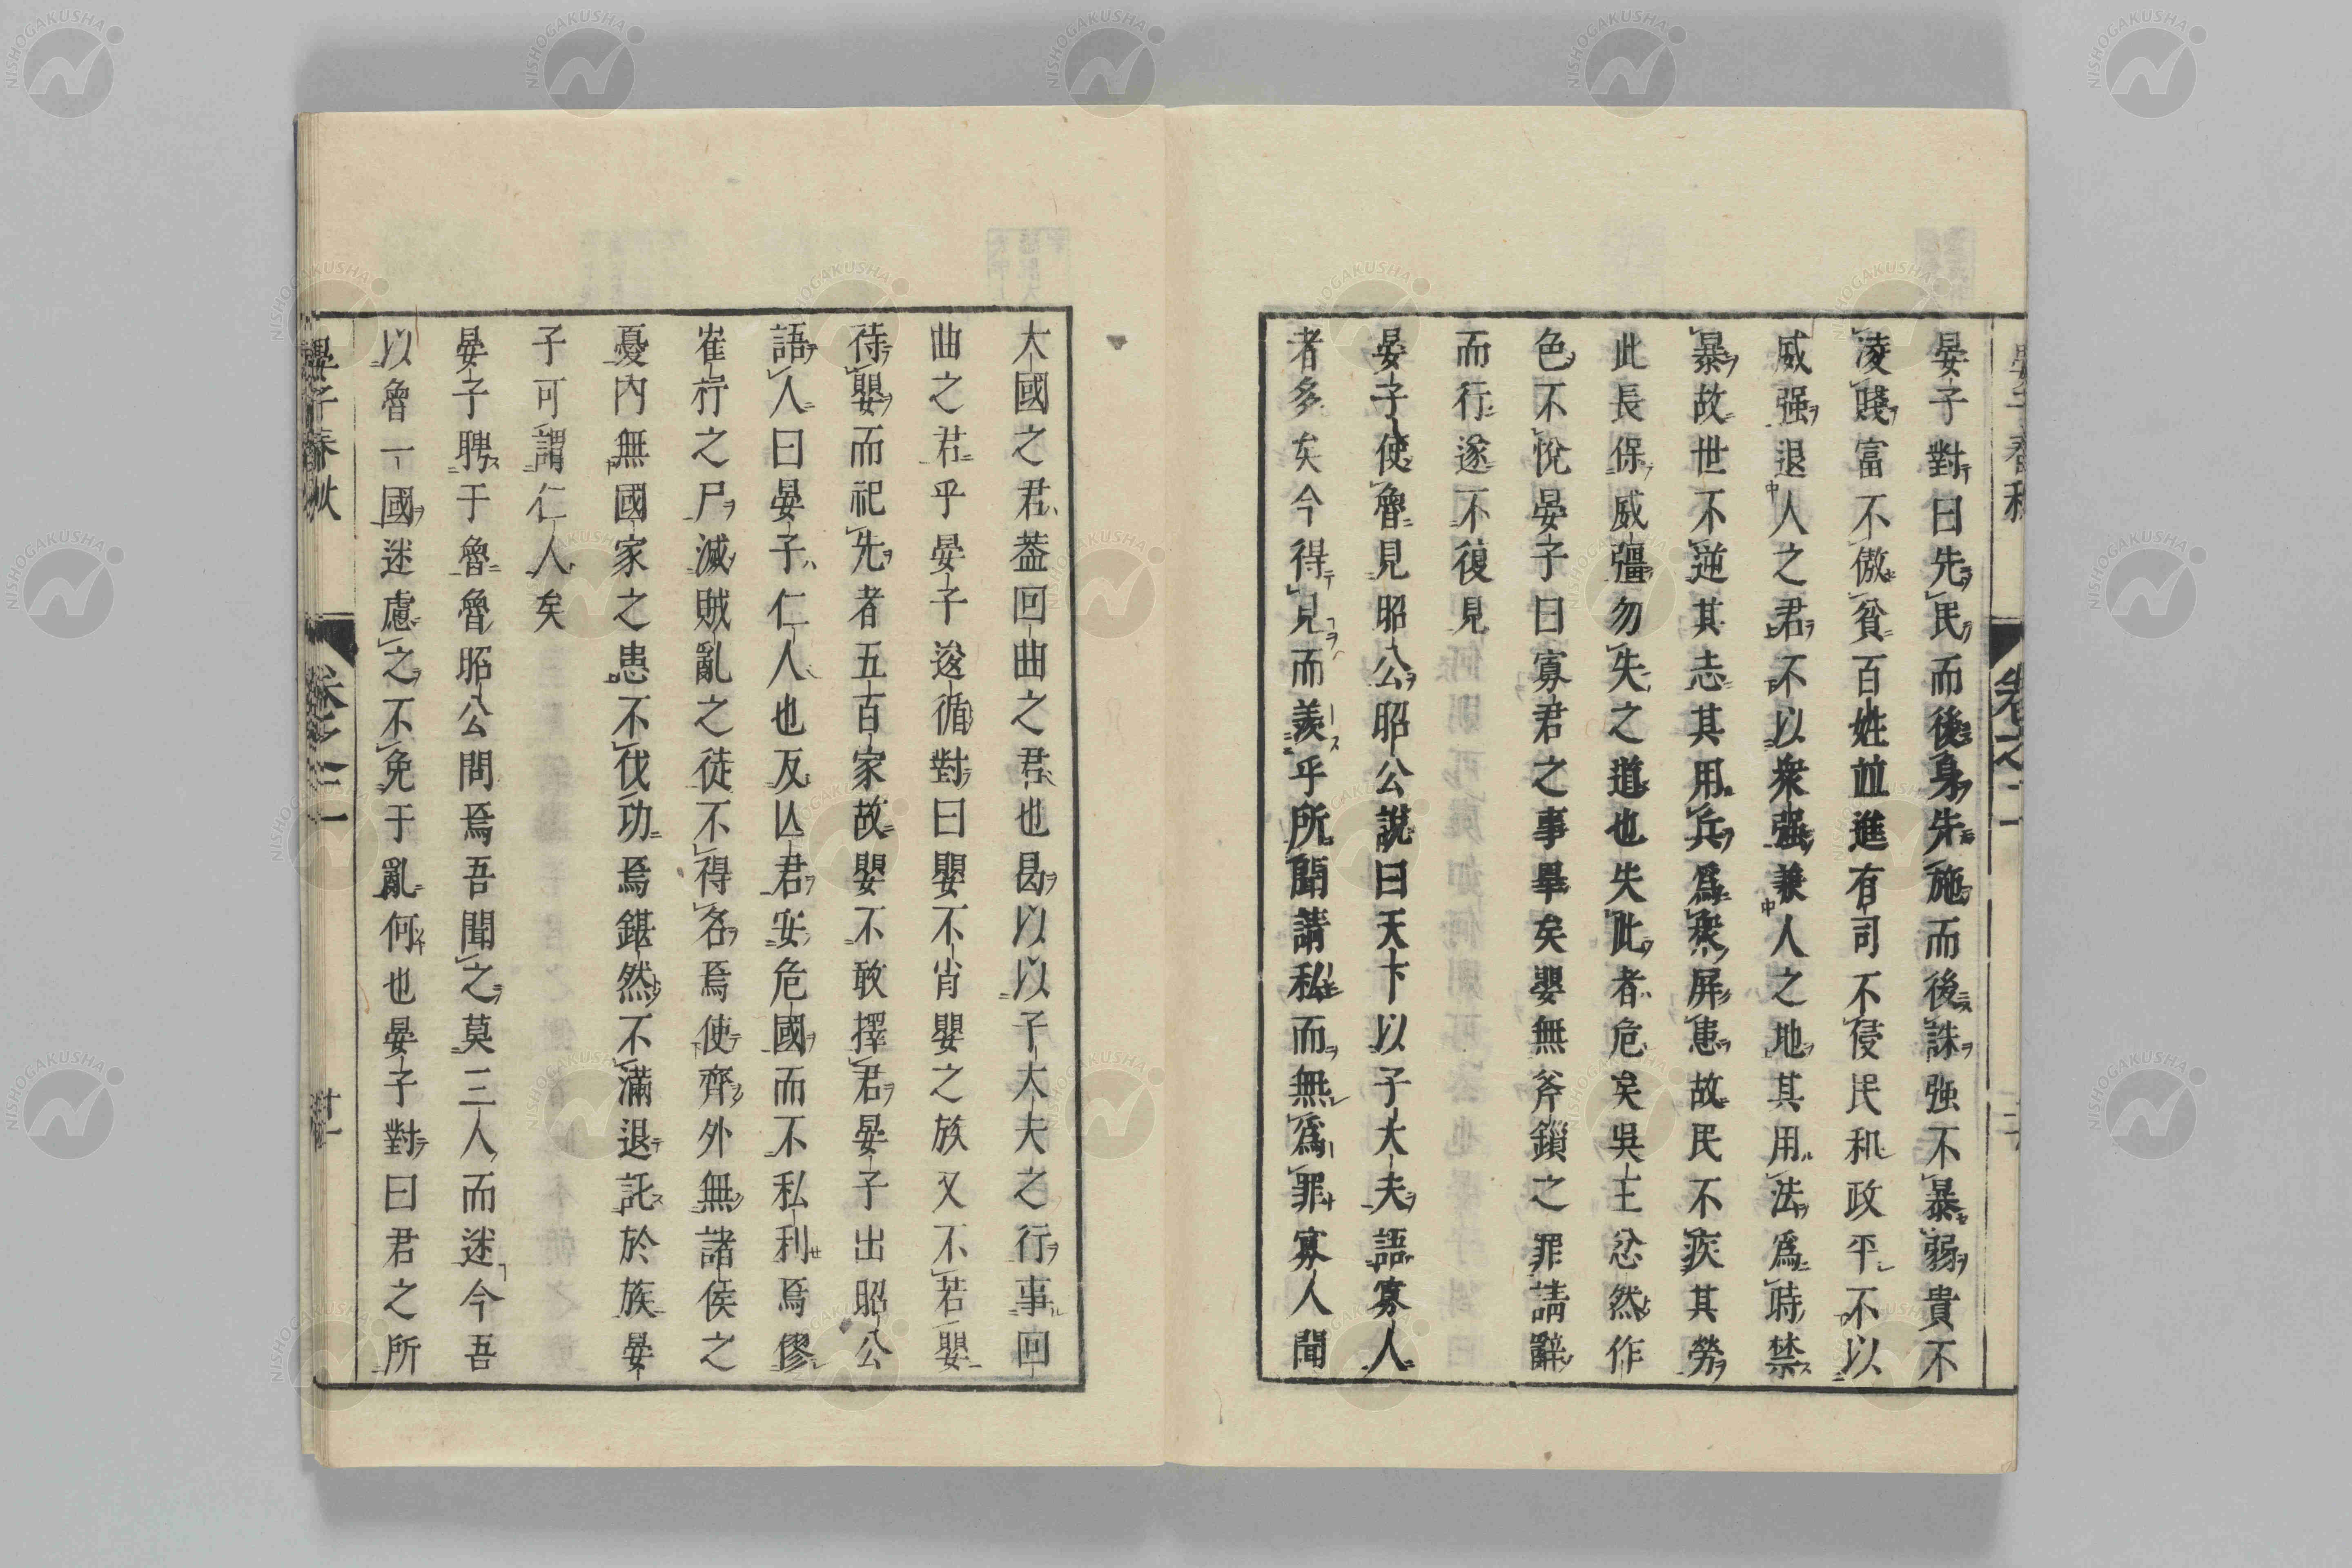 晏子對曰先民而後身先施而後誅强不暴弱貴不
凌賤富不傲貧百姓並進有司不侵民和政平不以
威强退人之君不以衆强兼人之地其用法爲時禁
暴故世不逆其志其用兵爲衆屏患故民不疾其勞
此長保威彊勿失之道也失此者危矣吳王忿然作
色不悅晏子曰寡君之事畢矣嬰無斧鑕之罪請辭
而行遂不復見
晏子使魯見昭公昭公說曰天下以子大夫語寡人
者多矣今得見而羨乎所聞請私而無爲罪寡人聞
大國之君葢回曲之君也曷以以子大夫之行事回
曲之君乎晏子逡循對曰嬰不肖嬰之族又不若嬰
待嬰而祀先者五百家故嬰不敢擇君晏子出昭公
語人曰晏子仁人也反亾君安危國而不私利焉僇
崔杼之尸滅賊亂之徒不得名焉使齊外無諸侯之
憂内無國家之患不伐功焉鍖然不滿退託於族晏
子可謂仁人矣
晏子聘于魯魯昭公問焉吾聞之莫三人而迷今吾
以魯一國迷慮之不免于亂何也晏子對曰君之所
晏子春秋
卷之二
NISHOGAKUSHA